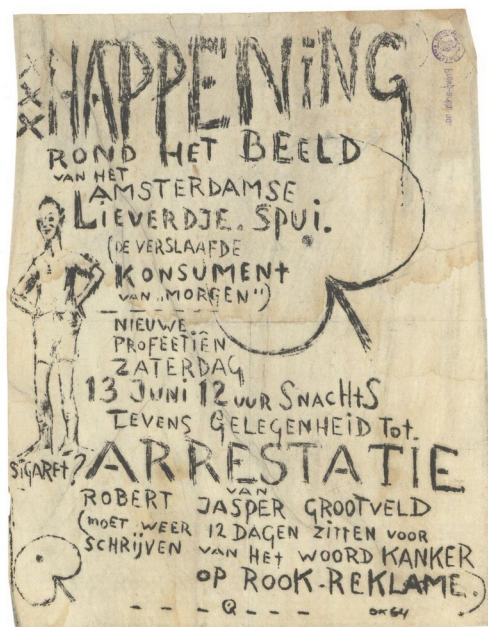 XXX HAPPENiNG
ROND HET BEELD
VAN HET
AMSTERDAMSE
LiEVERDJE. SPUi.
(DE VERSLAAFDE
KONSUMENT
VAN „MORGEN")
NiEUWE
PROFEETIËN
ZATERDAG
13 JUNi 12 UUR SNACHTS
TEVENS GELEGENHEID TOT.
SiGARET? ARRESTATIE
VAN
ROBERT JASPER GROOTVELD
(MOET WEER 12 DAGEN ZITTEN VOOR
SCHRIJVEN VAN HET WOORD KANKER
OP ROOK-REKLAME.)
- - - - Q - - - -